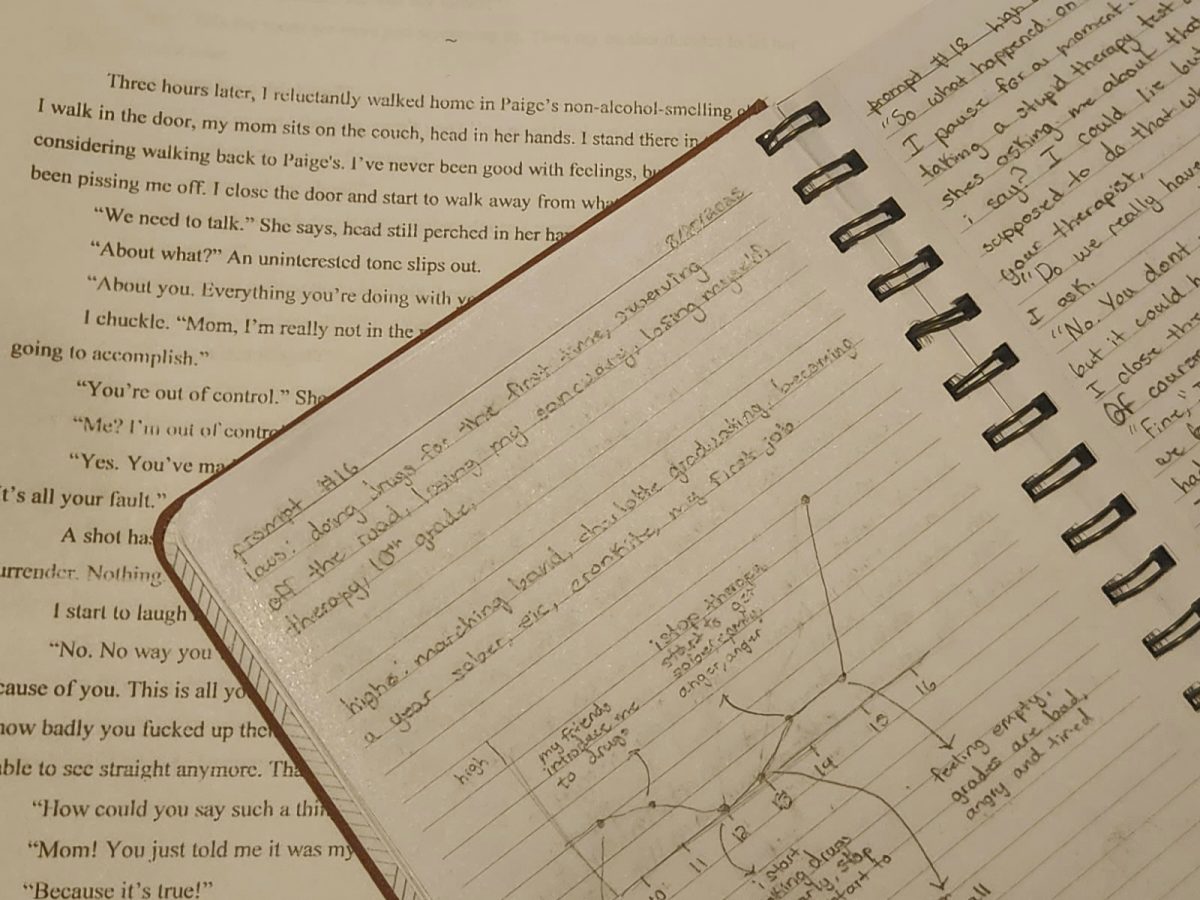 ~
Three hours later, I reluctantly walked home in Paige's non-alcohol-smelling
I walk in the door, my mom sits on the couch, head in her hands. I stand there in
considering walking back to Paige's. I've never been good with feelings,
been pissing me off. I close the door and start to walk away from
“We need to talk.” She says, head still perched in her
“About what?” An uninterested tone slips out.
“About you. Everything you're doing with
I chuckle. “Mom, I'm really not in the
going to accomplish.”
“You're out of control.” She
“Me? I'm out of
“Yes. You've
it's all your fault.”
A shot has
surrender. Nothing
I start to laugh
“No. No way you
cause of you. This is all
how badly you fucked up
able to see straight anymore.
“How could you say such a
“Mom! You just told me it was my
“Because it's true!”
prompt #16
lows: doing drugs for the first time, swerving
off the road, losing my sancuary, losing myself,
therapy, 10th grade,
highs: marching band, charlotte graduating, becoming
a year sober, eic, cronkite, my first job
high
my friends
introduce me
to drugs
i stop therapy
start to get
sober
anger, anger
10
11
12
13
14
15
16
i start
drugs
stop
start to
feeling empty,
grades are bad,
angry and tired
prompt #18 high
“So what happened on
I pause for a moment.
taking a stupid therapy test
shes asking me about
i say? I could lie but
supposed to do that
your therapist,
“Do we really have
I ask.
“No. You dont
but it could
I close
Of course
“Fine,”